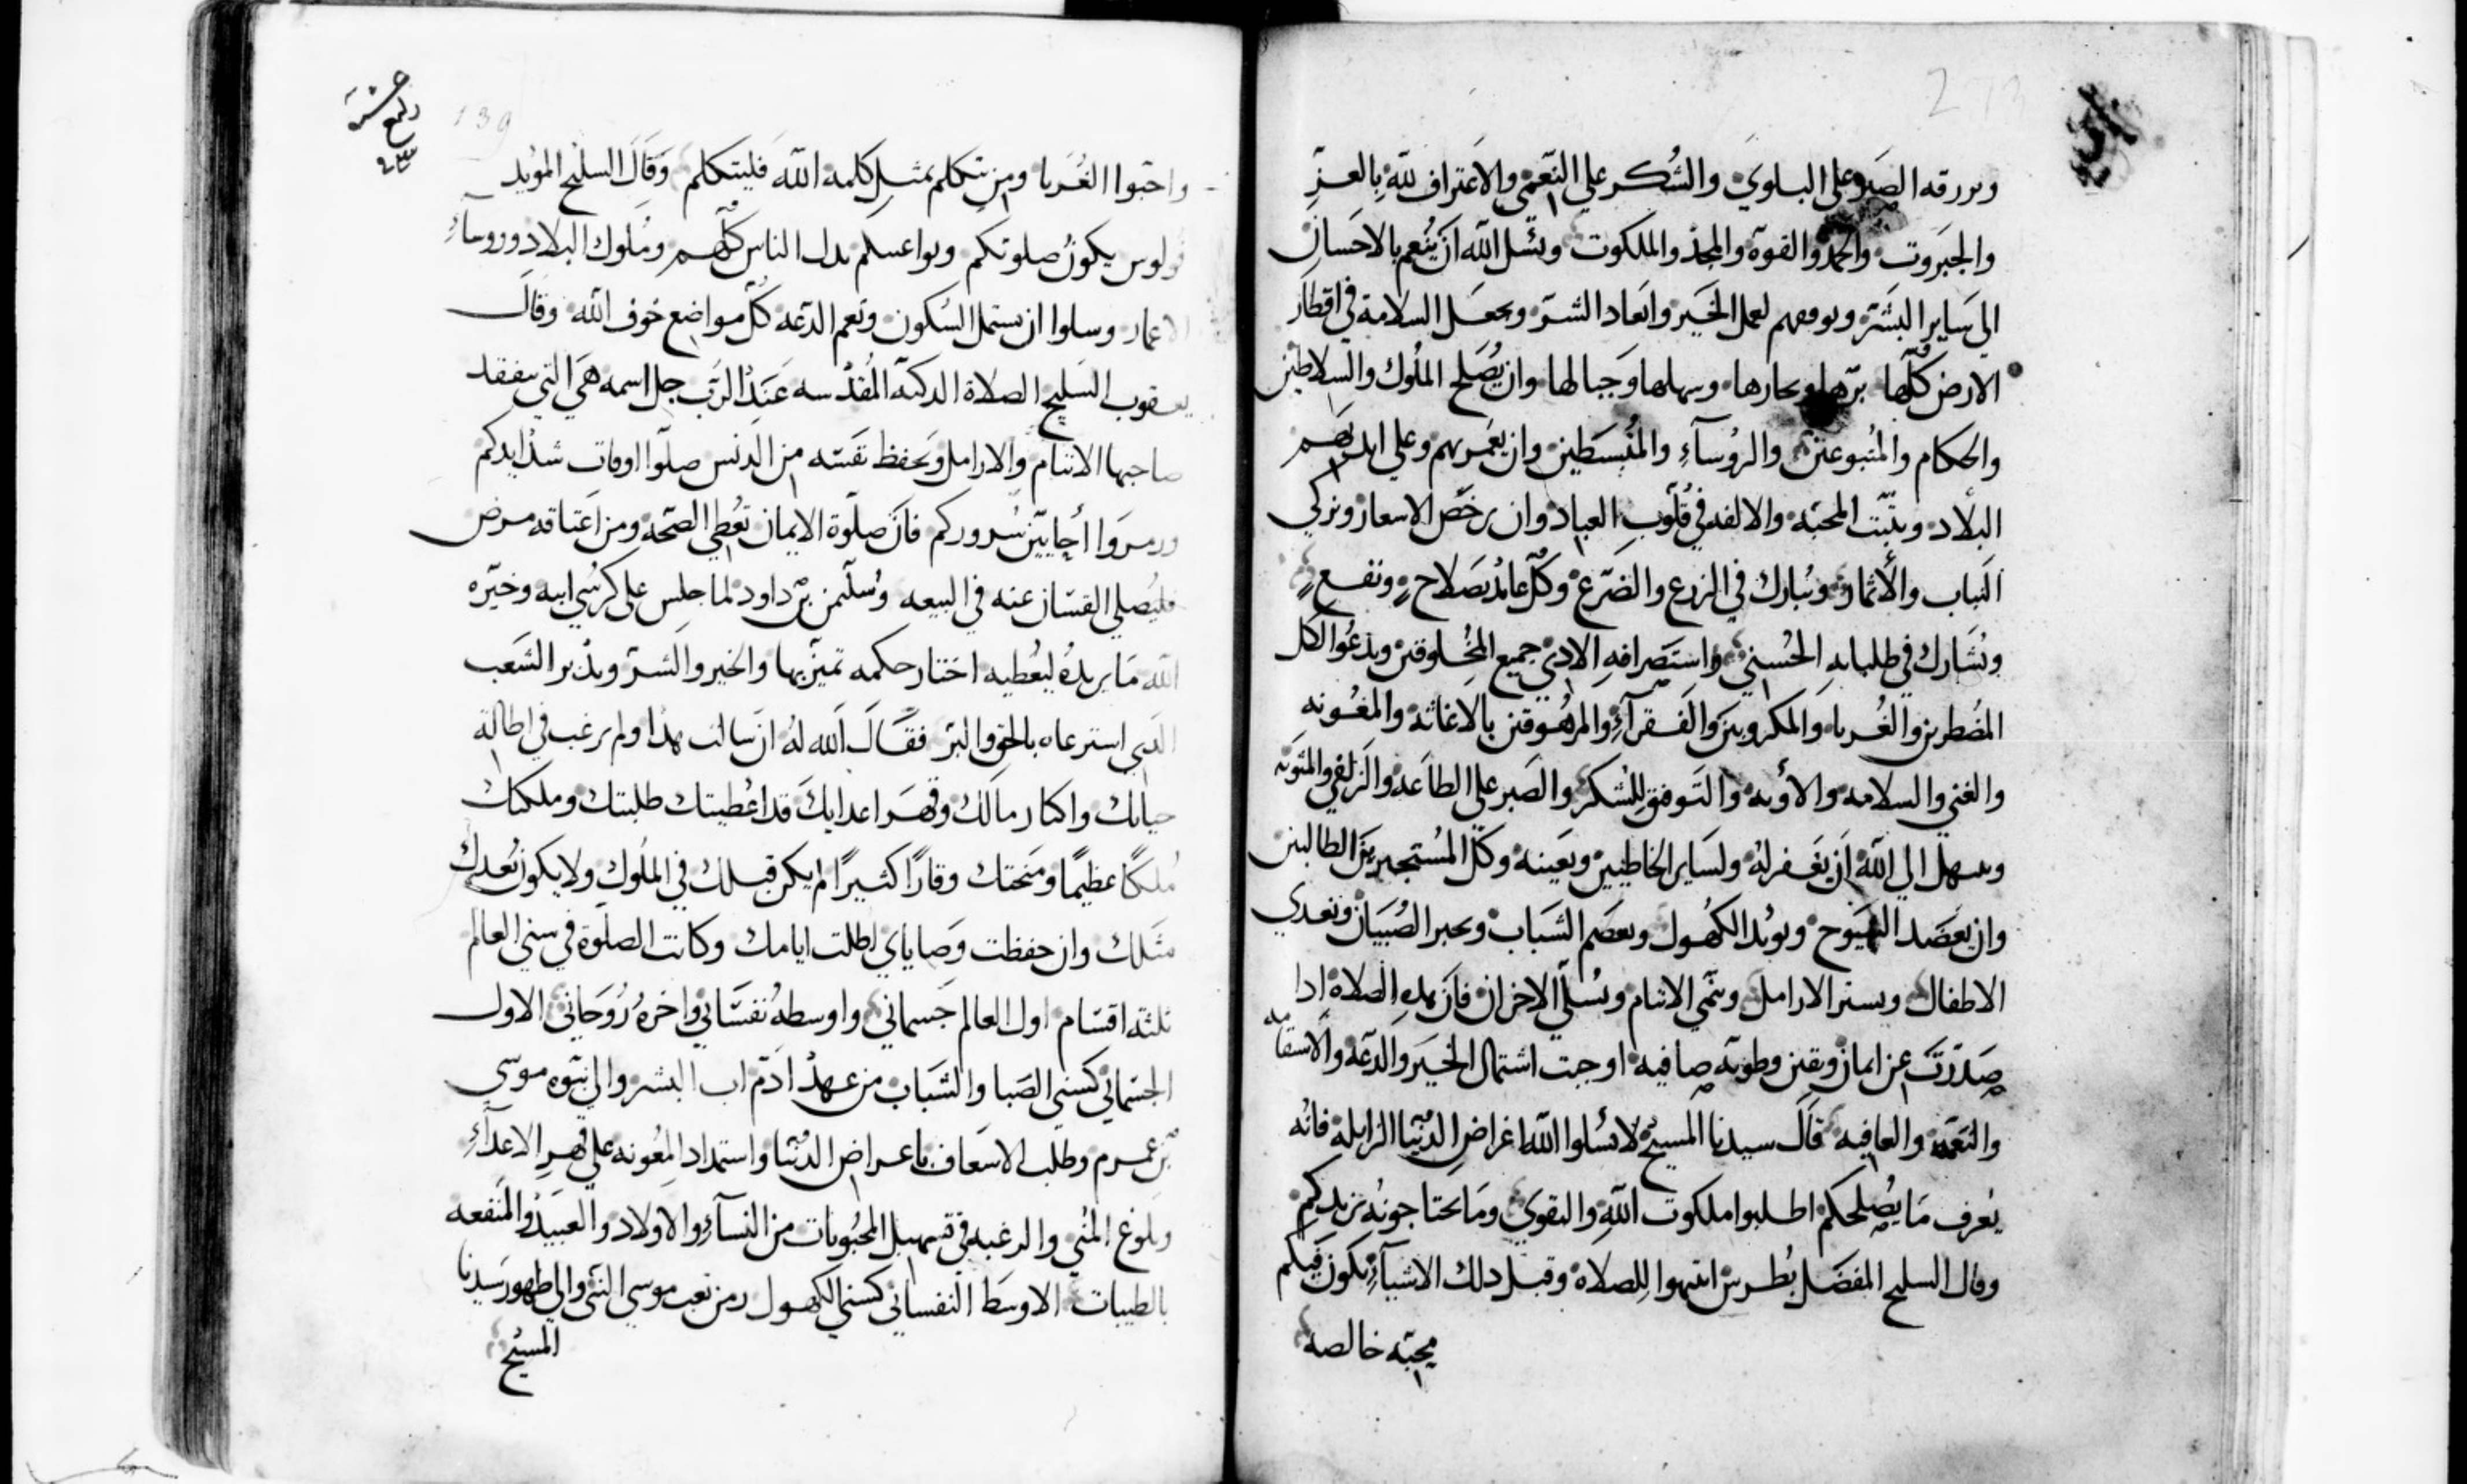 ويرزقه الصبر على البلوي والشكر علي النعمى والاعتراف لله بالعز
والجبروت والحمد والقوة والمجد والملكوت ونسل الله ان ينعم بالاحسان
الي ساير البشر ويوفقهم لعمل الخير وابعاد الشر ويجعل السلامة في اقطار
الارض كلها برها وبحارها وسهلها وجبالها وان يصلح الملوك والسلاطين
والحكام والمتبوعين والروسآء والمنبسطين وان يعمر بهم وعلي ايديهم
البلاد ويثبت المحبه والالفه في قلوب العباد وان يرخص الاسعار ويزكي
النبات والأثمار ويبارك في الزرع والضرع وكل عايد بصلاح ونفع
ونشارك في طلباته الحسني واستصرافه الاذي جميع المخلوقين ويدعوا لكل
المضطرين والغربا والمكروبين والفقرآء والمرهوقين بالاغاثه والمعونه
والغني والسلامه والأوبه والتوفيق للشكر والصبر علي الطاعه والزلفي والمثوبه
ويبتهل الي الله ان يغفر له ولساير الخاطيين ويعينه وكل المستجيرين الطالبين
وان يعضد الشيوخ ويويد الكهول ويعصم الشباب ويجبر الصبيان ويغدي
الاطفال ويستر الارامل وينمي الايتام ويسلي الاحزان فان هذه الصلاه اذا
صدرت عن ايمان ويقين وطويه صافيه اوجبت اشتمال الخير والدعه والاستقامه
والنعمه والعافيه قال سيدنا المسيح لا تسلوا الله اغراض الدنيا الزايلة فانه
يعرف ما يصلحكم اطلبوا ملكوت الله والتقوي وما تحتاجونه يزيدكم
وقال السليح المفضل بطرس انتبهوا للصلاه وقبل ذلك الاشيآء تكون فيكم
محبه خالصه
139
رابع عشرة
واحبوا الغربا ومن يتكلم بمثل كلمه الله فليتكلم وقال السليح المويد
فولوس يكون صلوتكم وتواعسلم بدل الناس كلهم وملوك البلاد وروسآء
الاعمار وسلوا ان يشتمل السكون وتعم الدعه كل مواضع خوف الله وقال
يعقوب السليح الصلاة الذكيه المقدسه عند الرب جل اسمه هي التي يتفقد
صاحبها الايتام والارامل ويحفظ نفسه من الدنس صلوا اوقات شدايدكم
وزمروا أحايين سروركم فان صلوة الايمان تعطي الصحه ومن اعتاقه مرض
فليصلي القسان عنه في البيعه وسليمن بن داود لما جلس علي كرسي ابيه وخيره
الله ما يريده ليعطيه اختار حكمه تميز بها والخير والشر ويدبر الشعب
الذي استرعاه بالحق والبر فقال الله له ان سالت هذا ولم ترغب في اطالة
حياتك واكثار مالك وقهر اعدايك قد اعطيتك طلبتك وملكتك
ملكا عظيما ومنحتك وقارا كثيرا لم يكن قبلك في الملوك ولا يكون بعدك
مثلك وان حفظت وصاياي اطلت ايامك وكانت الصلوة في سني العالم
ثلثه اقسام اول العالم جسماني واوسطه نفساني واخره روحاني الاول
الجسماني كسني الصبا والشباب من عهد ادم اب البشر والي نبوه موسي
بن عمرم وطلب الاسعاف باعراض الدنيا واستمداد المعونه علي قهر الاعدآء
وبلوغ المني والرغبه في تسهيل المحبوبات من النسآء والاولاد والعبيد والمنفعه
بالطيبات الاوسط النفساني كسني الكهول من بعث موسي النبي والي ظهور سيدنا
المسيح